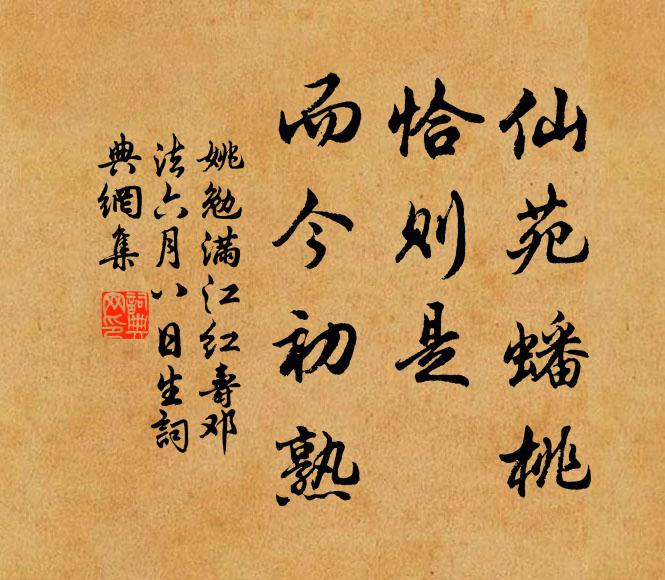 仙苑蟠桃
恰则是
而今初熟
姚勉满江红寿邓
法六月八日生詞
典網集
詞典网印